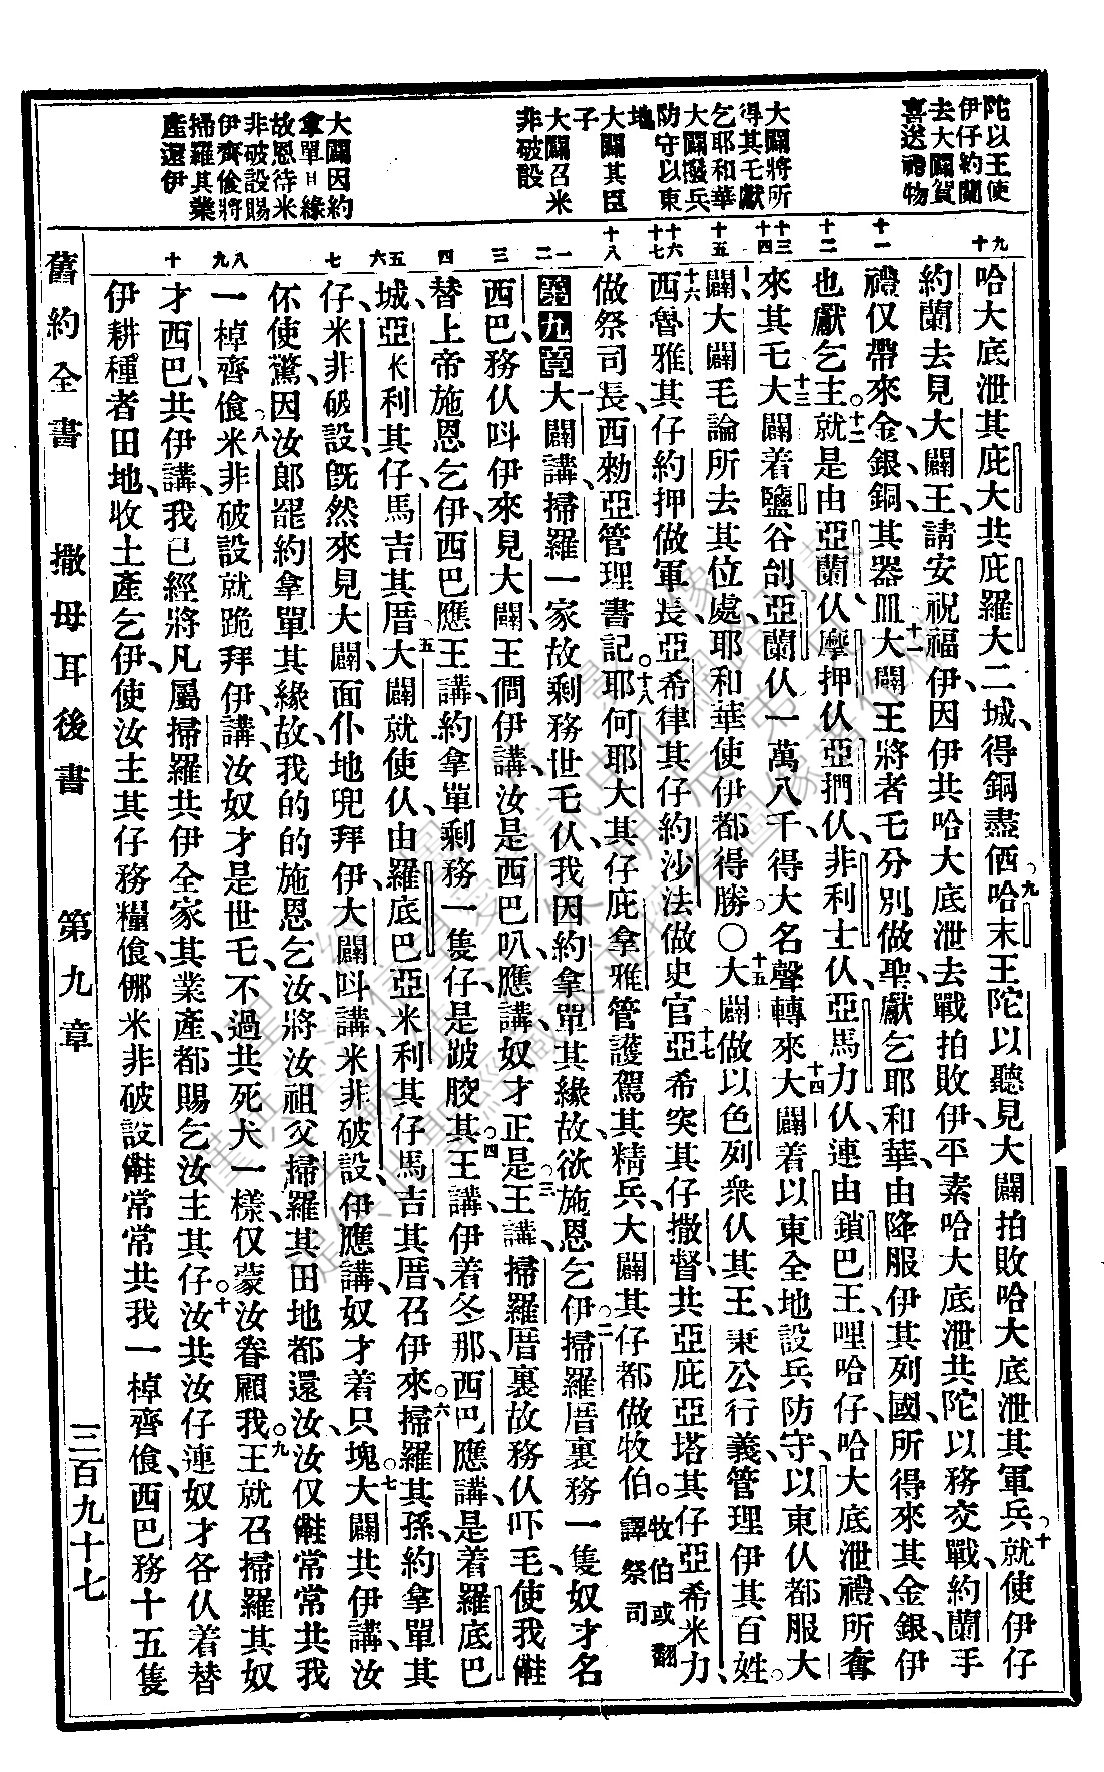 陀以王使
伊仔約蘭
去大闢賀
喜送禮物
大闢將所
得其乇獻
乞耶和華
大闢撥兵
防守以東
地
大闢其臣
子
大闢召米
非破設
大闢因約
拿單其緣
故恩待米
非破設賜
伊齊飡將
掃羅其業
產還伊
九
十
十一
十二
十三
十四
十五
十六
十七
十八
一
二
三
四
五
六
七
八
九
十
哈大底泄其庇大共庇羅大二城、得銅盡価。九哈末王陀以聽見大闢拍敗哈大底泄其軍兵。十就使伊仔
約蘭去見大闢王、請安祝福伊、因伊共哈大底泄去戰拍敗伊、平素哈大底泄共陀以務交戰、約蘭手
禮仅帶來金、銀、銅其器皿、十一大闢王將者乇分別做聖、獻乞耶和華、由降服伊其列國、所得來其金銀、伊
也獻乞主。十二就是由亞蘭仈、摩押仈、亞捫仈、非利士仈、亞馬力仈、連由鎖巴王、哩哈仔、哈大底泄禮、所奪
來其乇。十三大闢着鹽谷刣亞蘭仈一萬八千、得大名聲轉來。十四大闢着以東全地設兵防守、以東仈都服大
闢、大闢毛論所去其位處、耶和華使伊都得勝。○十五大闢做以色列衆仈其王、秉公行義、管理伊其百姓。
十六西魯雅其仔約押做軍長、亞希律其仔約沙法做史官、十七亞希突其仔撒督、共亞庇亞塔其仔亞希米力、
做祭司長、西勑亞管理書記。十八耶何耶大其仔庇拿雅管護駕其精兵、大闢其仔都做牧伯。牧伯或翻譯祭司
第九章一大闢講、掃羅一家故剩務世乇仈、我因約拿單其緣故、欲施恩乞伊。二掃羅厝裏務一隻奴才名
西巴、務仈呌伊來見大闢、王問伊講、汝是西巴叭、應講、奴才正是。三王講、掃羅厝裏故務仈吓毛、使我𣍐
替上帝施恩乞伊、西巴應王講、約拿單剩務一隻仔、是跛骹其。四王講、伊着冬那、西巴應講、是着羅底巴
城、亞米利其仔、馬吉其厝。五大闢就使仈由羅底巴、亞米利其仔馬吉其厝、召伊來。六掃羅其孫、約拿單其
仔、米非破設、旣然來見大闢、面仆地兜拜伊、大闢呌講、米非破設、伊應講、奴才着只塊。七大闢共伊講、汝
伓使驚、因汝郎罷約拿單其緣故、我的的施恩乞汝、將汝祖父掃羅其田地都還汝、汝仅常常共我
一棹齊飡。八米非破設就跪拜伊、講、汝奴才是世乇、不過共死犬一樣、仅蒙汝眷顧我。九王就召掃羅其奴
才西巴、共伊講、我已經將凡屬掃羅共伊全家其業產、都賜乞汝主其仔。十汝共汝仔連奴才各仈着替
伊耕種者田地、收土產乞伊、使汝主其仔務糧飡、㑚米非破設常常共我一棹齊飡、西巴務十五隻
舊約全書　撒母耳後書　第九章　三百九十七